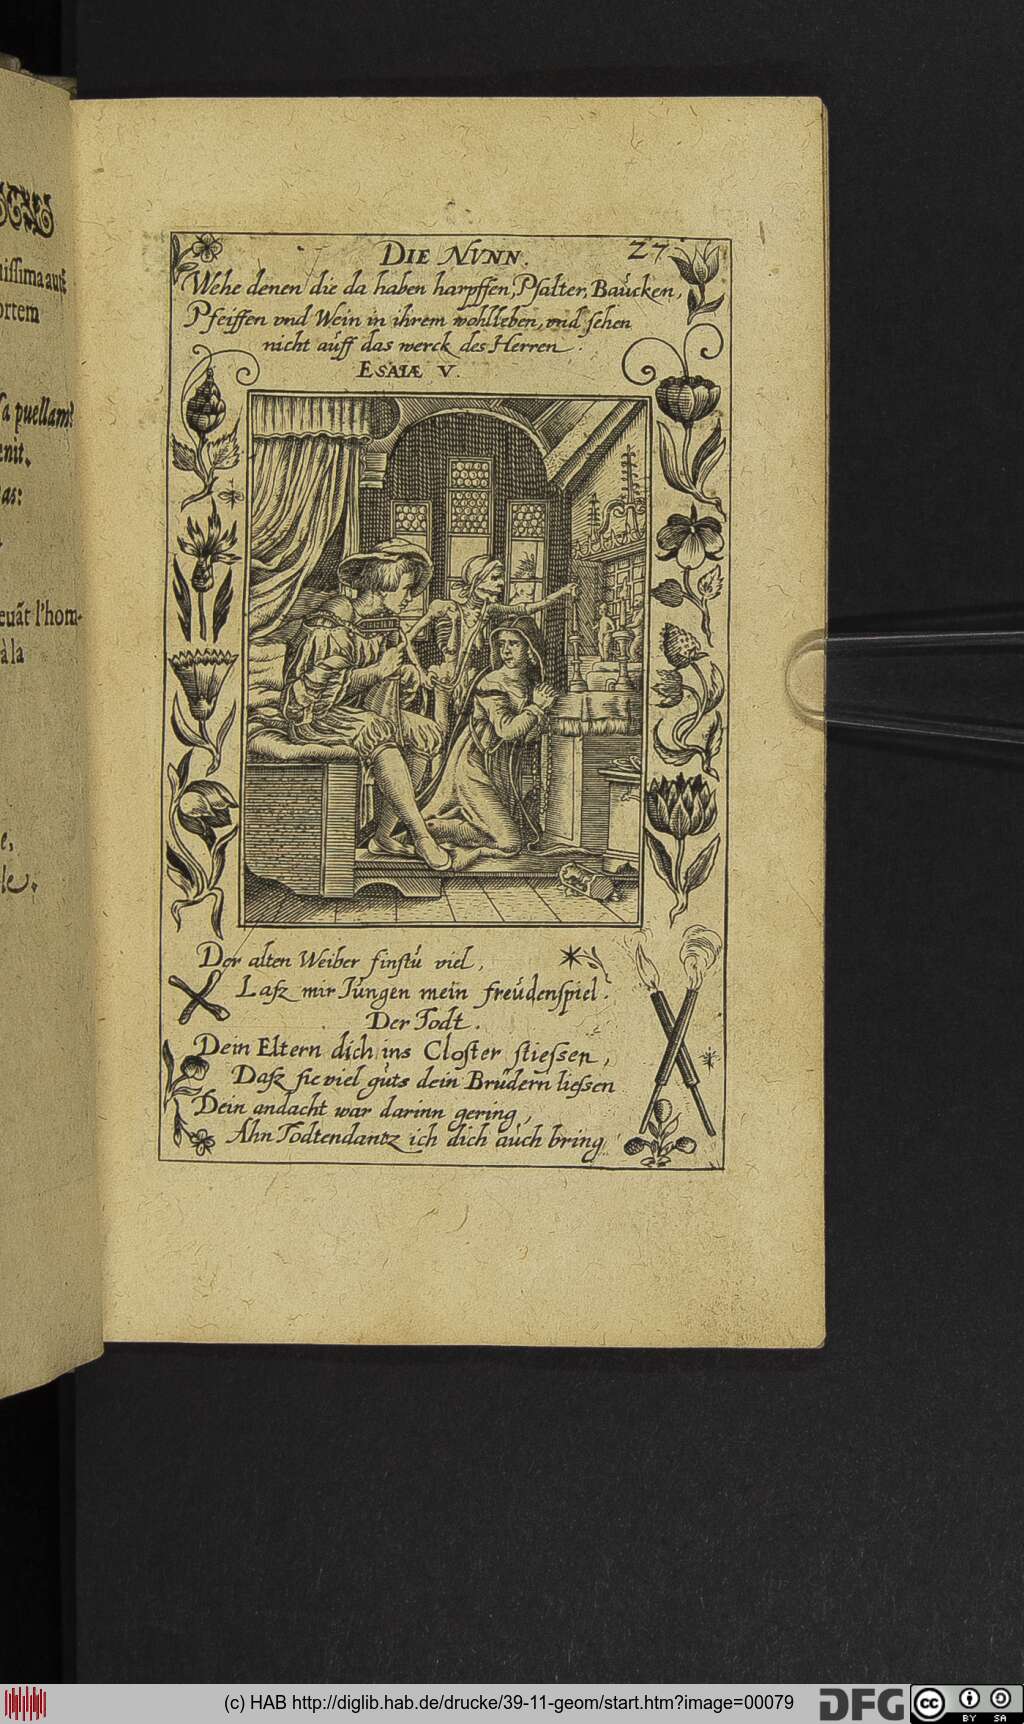 uissima aut
ortem
sa puellam?
enit.
as:
evãt l'hom-
à la
e,
le.
DIE NVNN. 27
Wehe denen die da haben harpffen, Psalter, Baucken,
Pfeiffen vnd Wein in ihrem wohlleben, vnd sehen
nicht auff das werck des Herren.
ESAIÆ V.
Der alten Weiber sinstu viel,
Lasz mir Jungen mein freudenspiel.
Der Todt.
Dein Eltern dich ins Closter stiessen,
Dasz sie viel guts dein Brüdern liessen
Dein andacht war darinn gering,
Ahn Todtendantz ich dich auch bring.
(c) HAB http://diglib.hab.de/drucke/39-11-geom/start.htm?image=00079
DFG
cc
BY SA